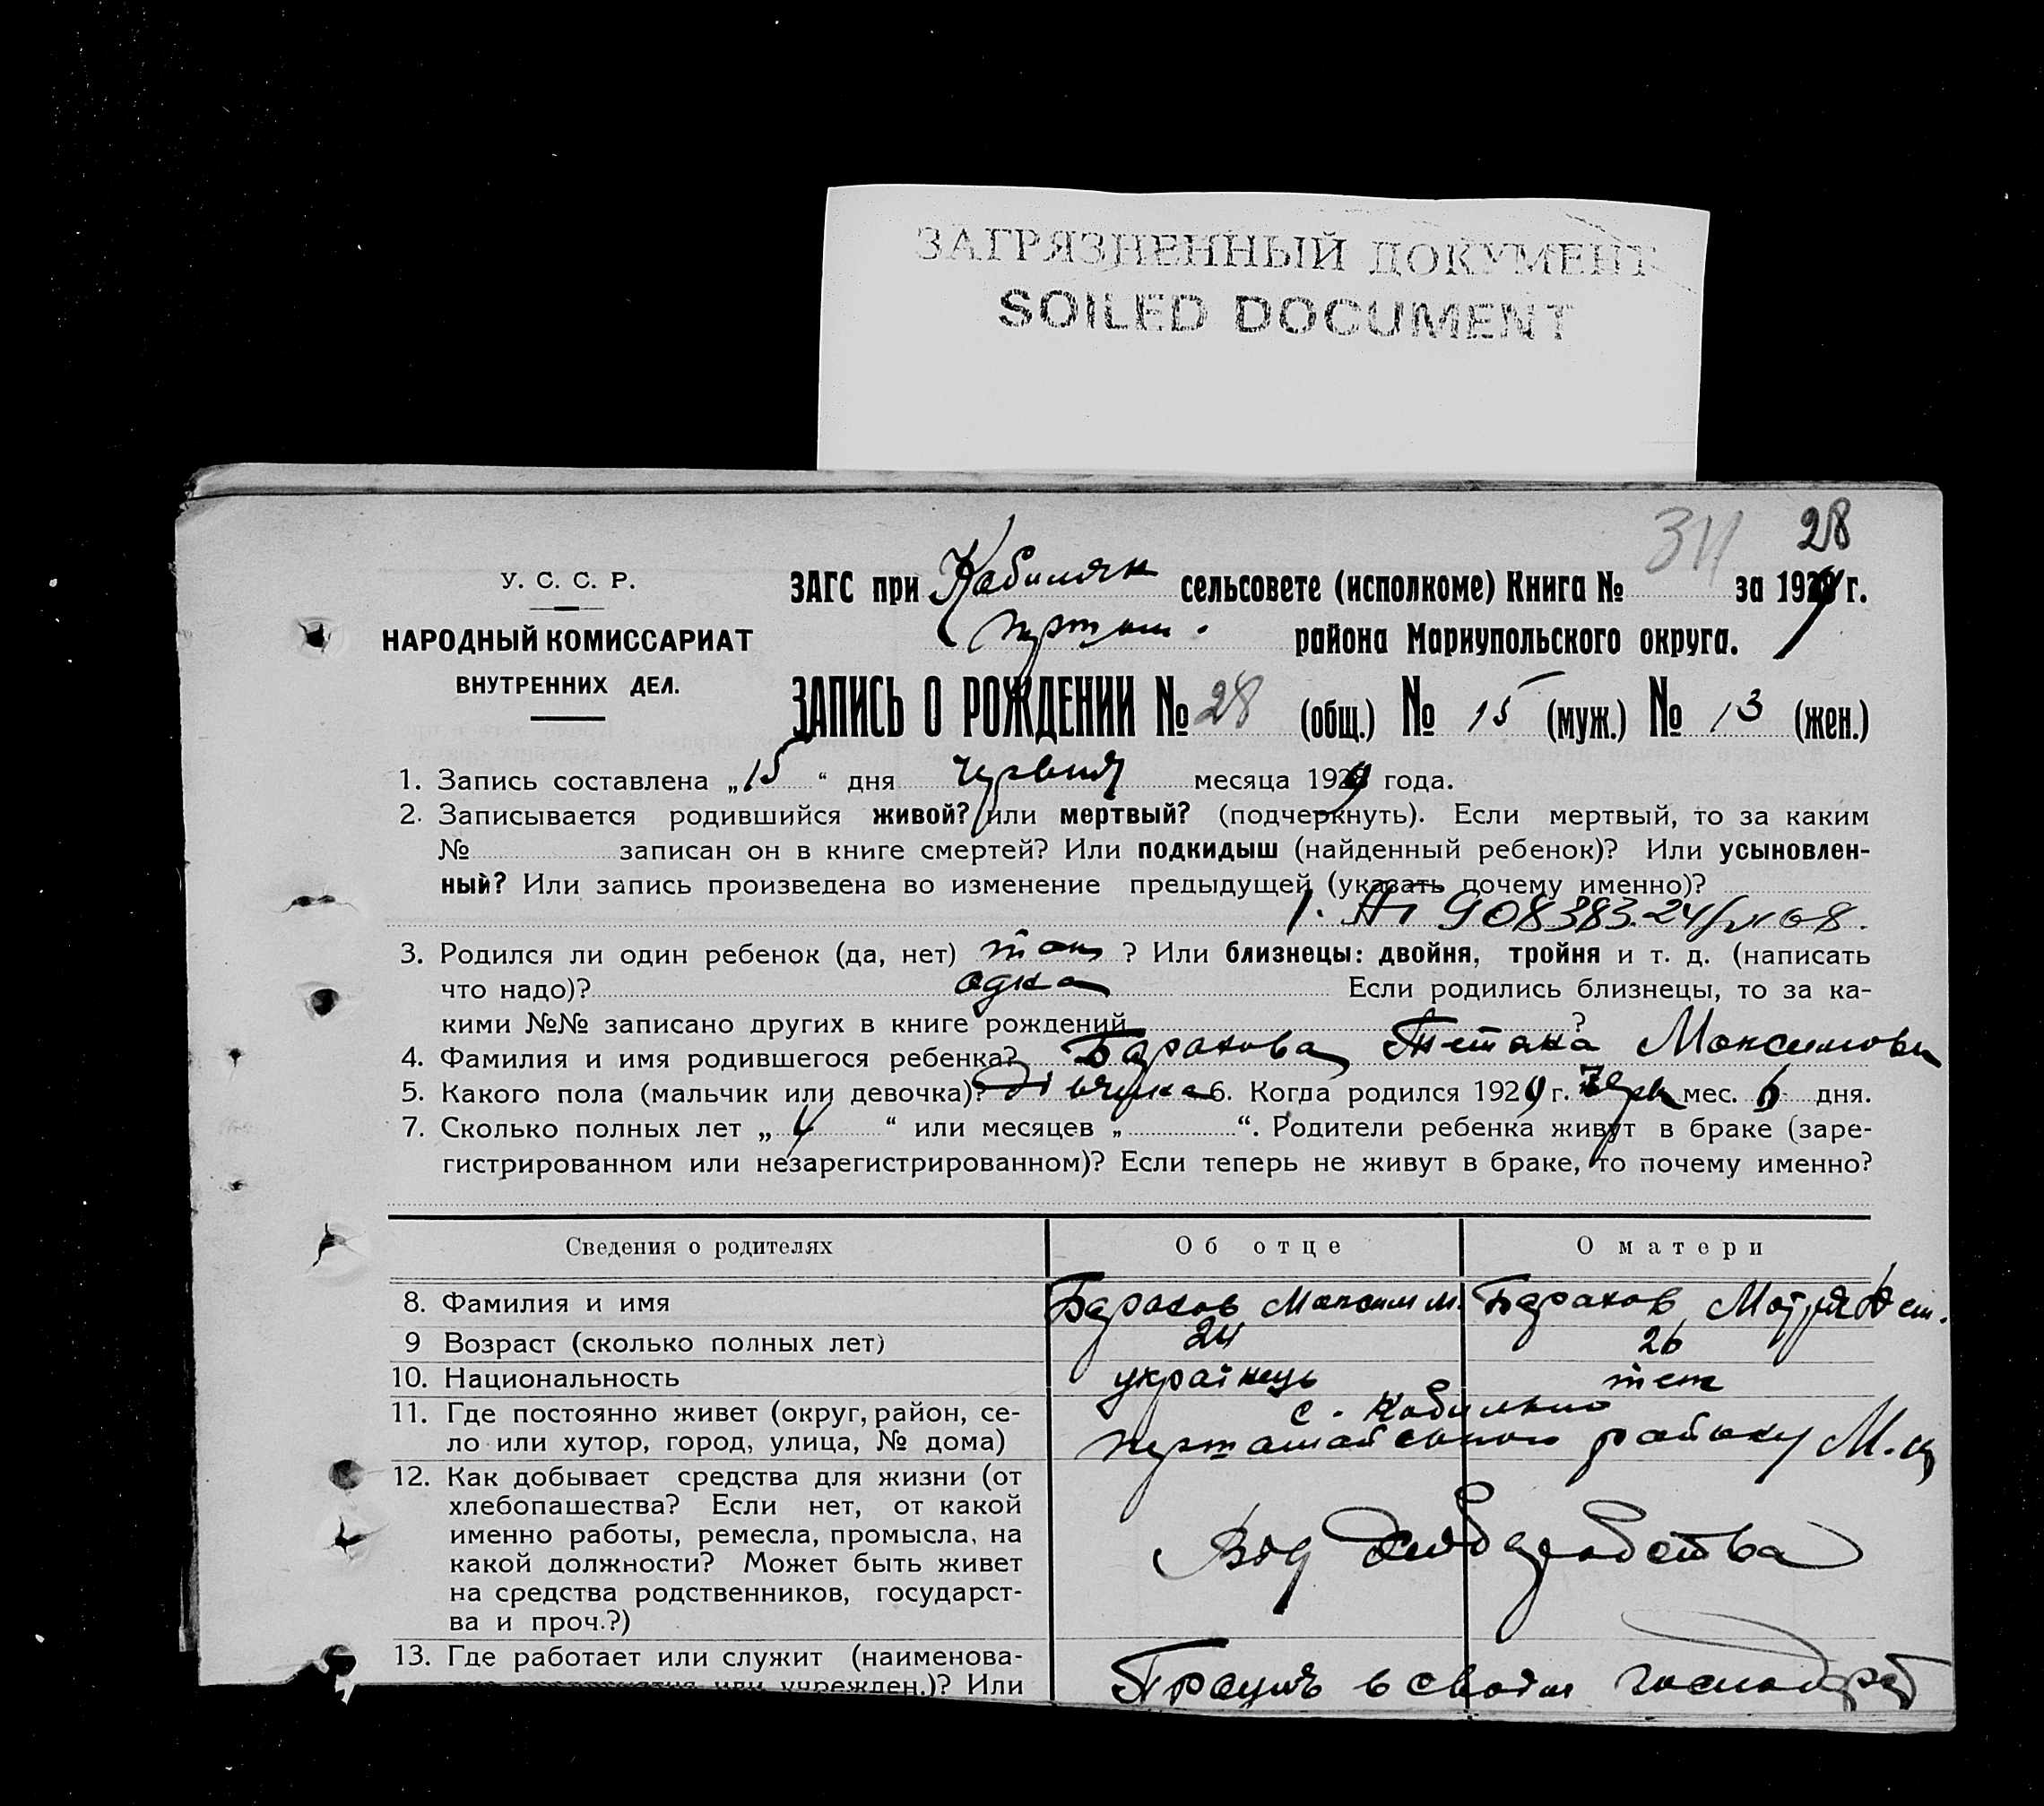 ЗАГРЯЗНЕННЫЙ ДОКУМЕНТ
SOILED DOCUMENT
28
У. С. С. Р.
НАРОДНЫЙ КОМИССАРИАТ
ВНУТРЕННИХ ДЕЛ.
ЗАГС при сельсовете (исполкоме) Книга № за 1929 г.
района Мариупольского округа.
ЗАПИСЬ О РОЖДЕНИИ № 28 (общ.) № 15 (муж.) № 13 (жен.)
1. Запись составлена „15“ дня червня месяца 1929 года.
2. Записывается родившийся живой? или мертвый? (подчеркнуть). Если мертвый, то за каким
№ записан он в книге смертей? Или подкидыш (найденный ребенок)? Или усыновлен-
ный? Или запись произведена во изменение предыдущей (указать почему именно)?
3. Родился ли один ребенок (да, нет) ? Или близнецы: двойня, тройня и т. д. (написать
что надо)? одна Если родились близнецы, то за ка-
кими №№ записано других в книге рождений ?
4. Фамилия и имя родившегося ребенка? Барахова Тетяна Максимовн
5. Какого пола (мальчик или девочка)? Дівчинка 6. Когда родился 1929 г. мес. 6 дня.
7. Сколько полных лет „ “ или месяцев „ “. Родители ребенка живут в браке (заре-
гистрированном или незарегистрированном)? Если теперь не живут в браке, то почему именно?
Сведения о родителях Об отце О матери
8. Фамилия и имя Барахов Максим М. Барахов Мотря
9 Возраст (сколько полных лет) 24 26
10. Национальность українець теж
11. Где постоянно живет (округ, район, се-
ло или хутор, город, улица, № дома)
с. району М.
12. Как добывает средства для жизни (от
хлебопашества? Если нет, от какой
именно работы, ремесла, промысла, на
какой должности? Может быть живет
на средства родственников, государст-
ва и проч.?)
Від хлібаробства
13. Где работает или служит (наименова-
учрежден.)? Или
Працюѣ в своїм господар